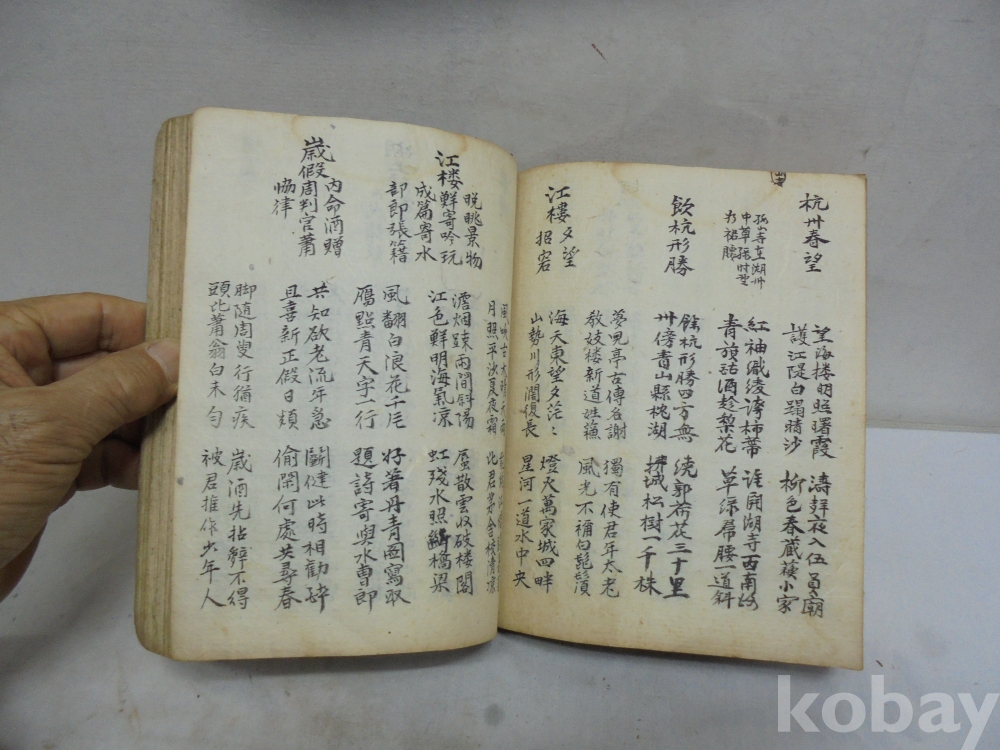 杭州春望
望海楼明照曙霞 濤聲夜入伍員廟
護江隄白蹋晴沙 柳色春藏蘇小家
孤山寺在湖州
中草綠時望
如裙腰
紅袖織綾誇柿蒂 誰開湖寺西南路
青旗沽酒趁梨花 草綠帬腰一道斜
飲杭形勝
餘杭形勝四方無 繞郭荷花三十里
州傍青山縣枕湖 拂城松樹一千株
夢児亭古傳名謝 獨有使君年太老
教妓楼新道姓蘓 風光不稱白髭鬚
江樓夕望招客
海天東望夕茫〻 燈火萬家城四畔
山勢川形濶復長 星河一道水中央
風吹古木晴天雨
月照平沙夏夜霜 比君茅舍校清凉
江楼晚眺景物
鮮寄吟玩
成篇寄水
部郎張籍
澹烟疎雨間斜陽 蜃散雲収破楼閣
江色鮮明海氣凉 虹殘水照斷橋梁
風翻白浪花千片 好著丹青圖寫取
鴈點青天字一行 題詩寄與水曹郎
歲假內命酒贈
周判官蕭
恊律
共知欲老流年急 關健此時相勸醉
且喜新正假日頻 偷閑何處共尋春
脚随周叟行猶疾 歲酒先拈辭不得
頭比蕭翁白未勻 被君推作少年人
kobay